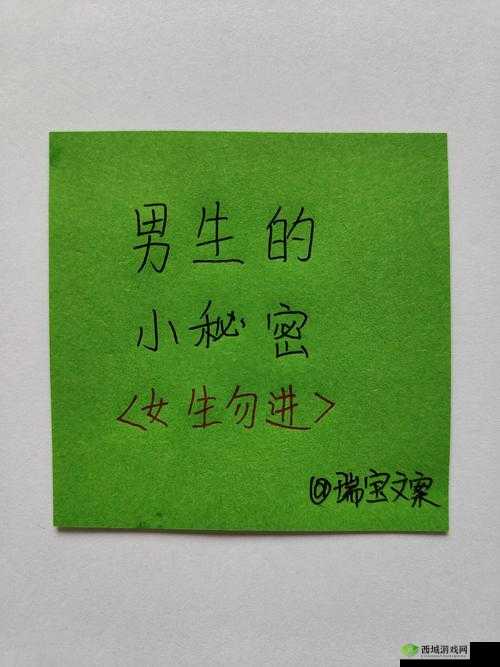 男生的
小秘密
<女生勿进>
@瑞宝文案
西城游戏网